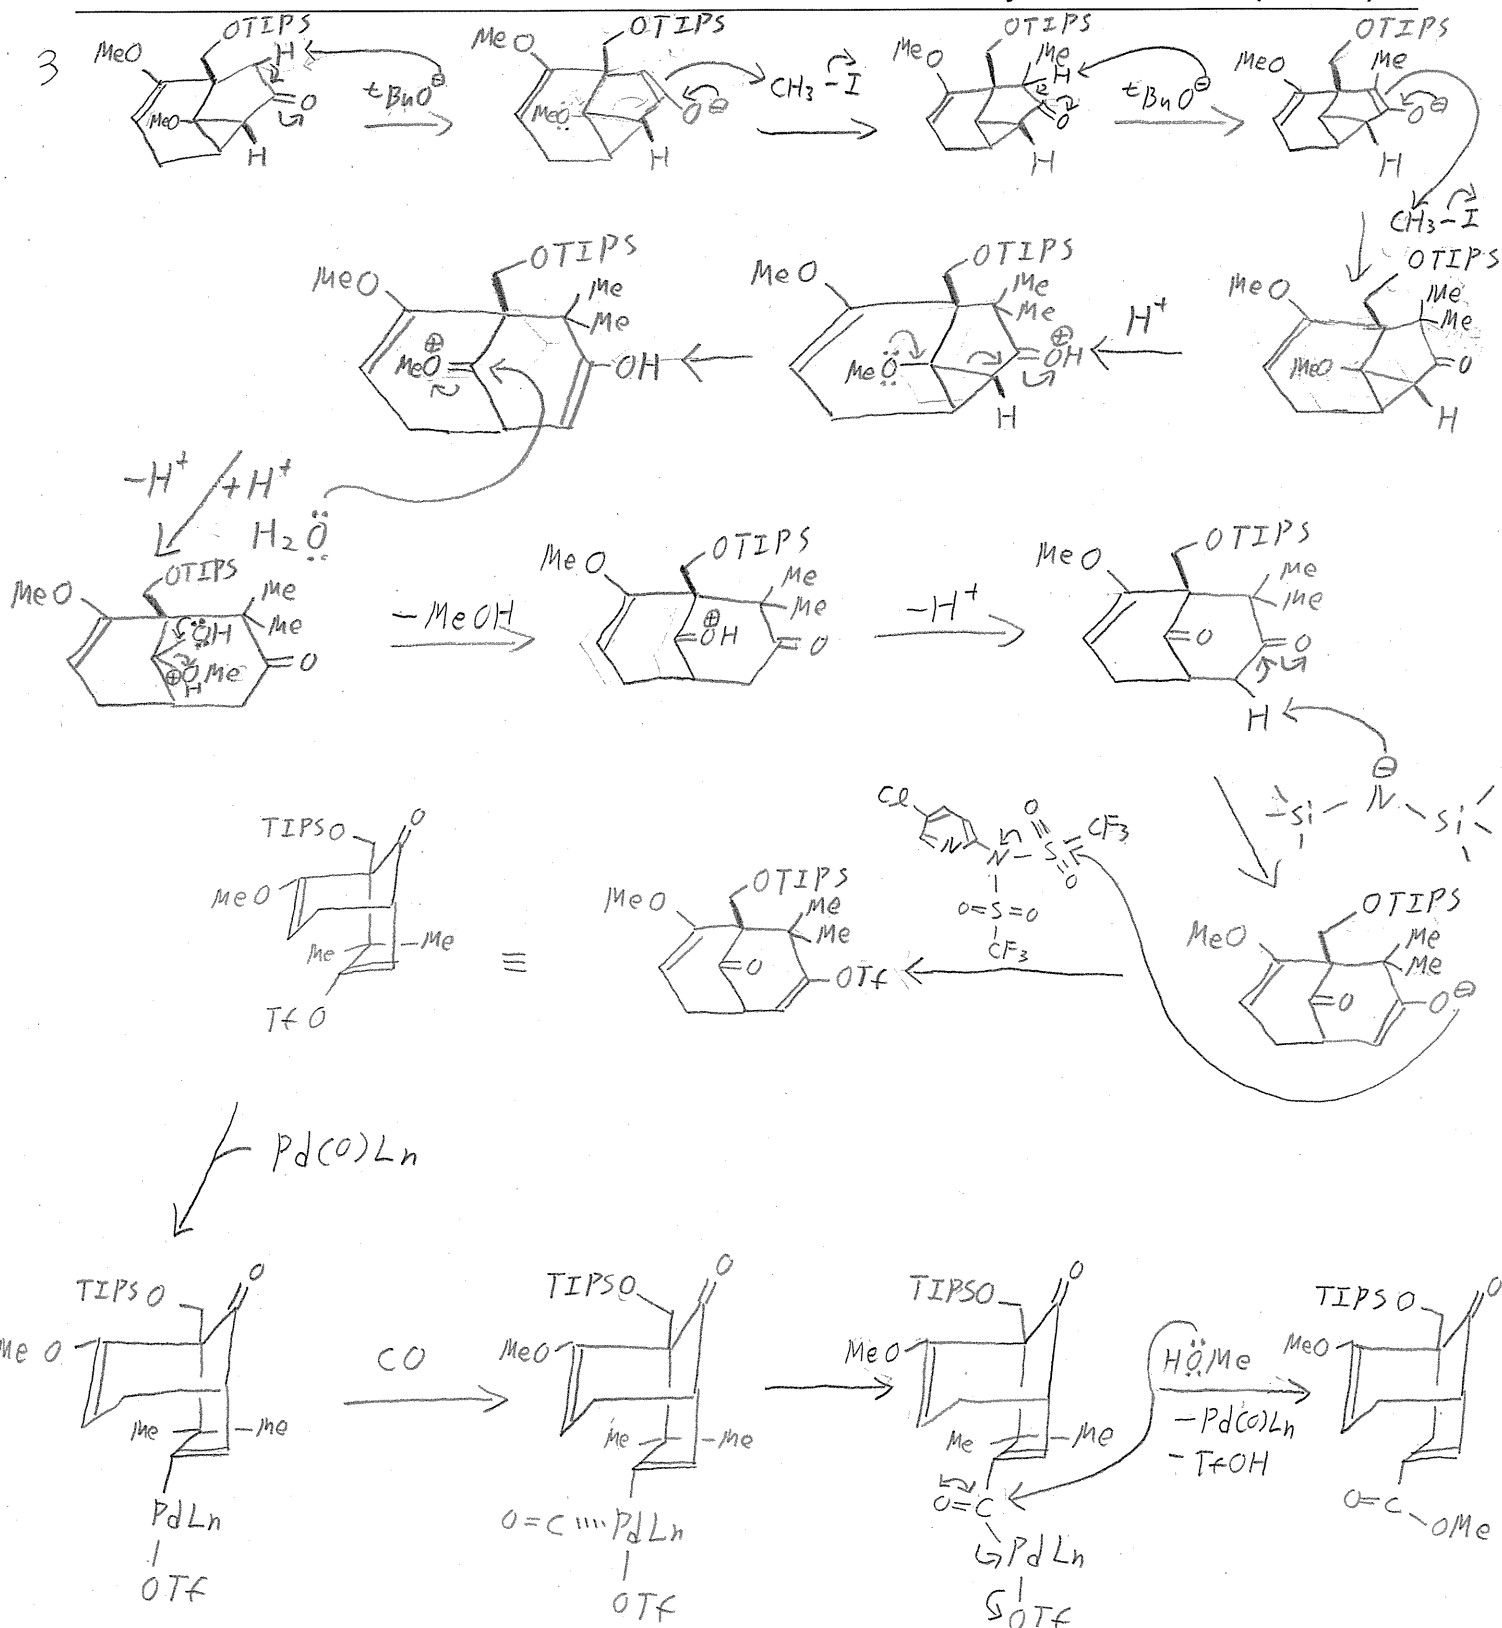 3
MeO OTIPS H MeO O H
tBuO⊖
MeO OTIPS MeO O⊖ H
CH3-I
MeO OTIPS Me H O H
tBuO⊖
MeO OTIPS Me O⊖ H
CH3-I
MeO OTIPS Me Me MeO O H
H+
MeO OTIPS Me Me MeO ⊕OH H
MeO OTIPS Me Me ⊕ MeO OH
-H+ +H+
H2O
MeO OTIPS Me Me OH ⊕OMe H O
-MeOH
MeO OTIPS Me Me ⊕OH O
-H+
MeO OTIPS Me Me O O H
⊖ N Si Si
MeO OTIPS Me Me O O⊖
Cl N N O S O CF3
O=S=O
CF3
MeO OTIPS Me Me O OTf
≡
TIPSO O MeO Me Me TfO
Pd(0)Ln
TIPSO O MeO Me Me
PdLn
OTf
CO
TIPSO O MeO Me Me
O=C PdLn
OTf
TIPSO O MeO Me Me
O=C
PdLn
OTf
HOMe
-Pd(0)Ln
-TfOH
TIPSO O MeO
O=C
OMe